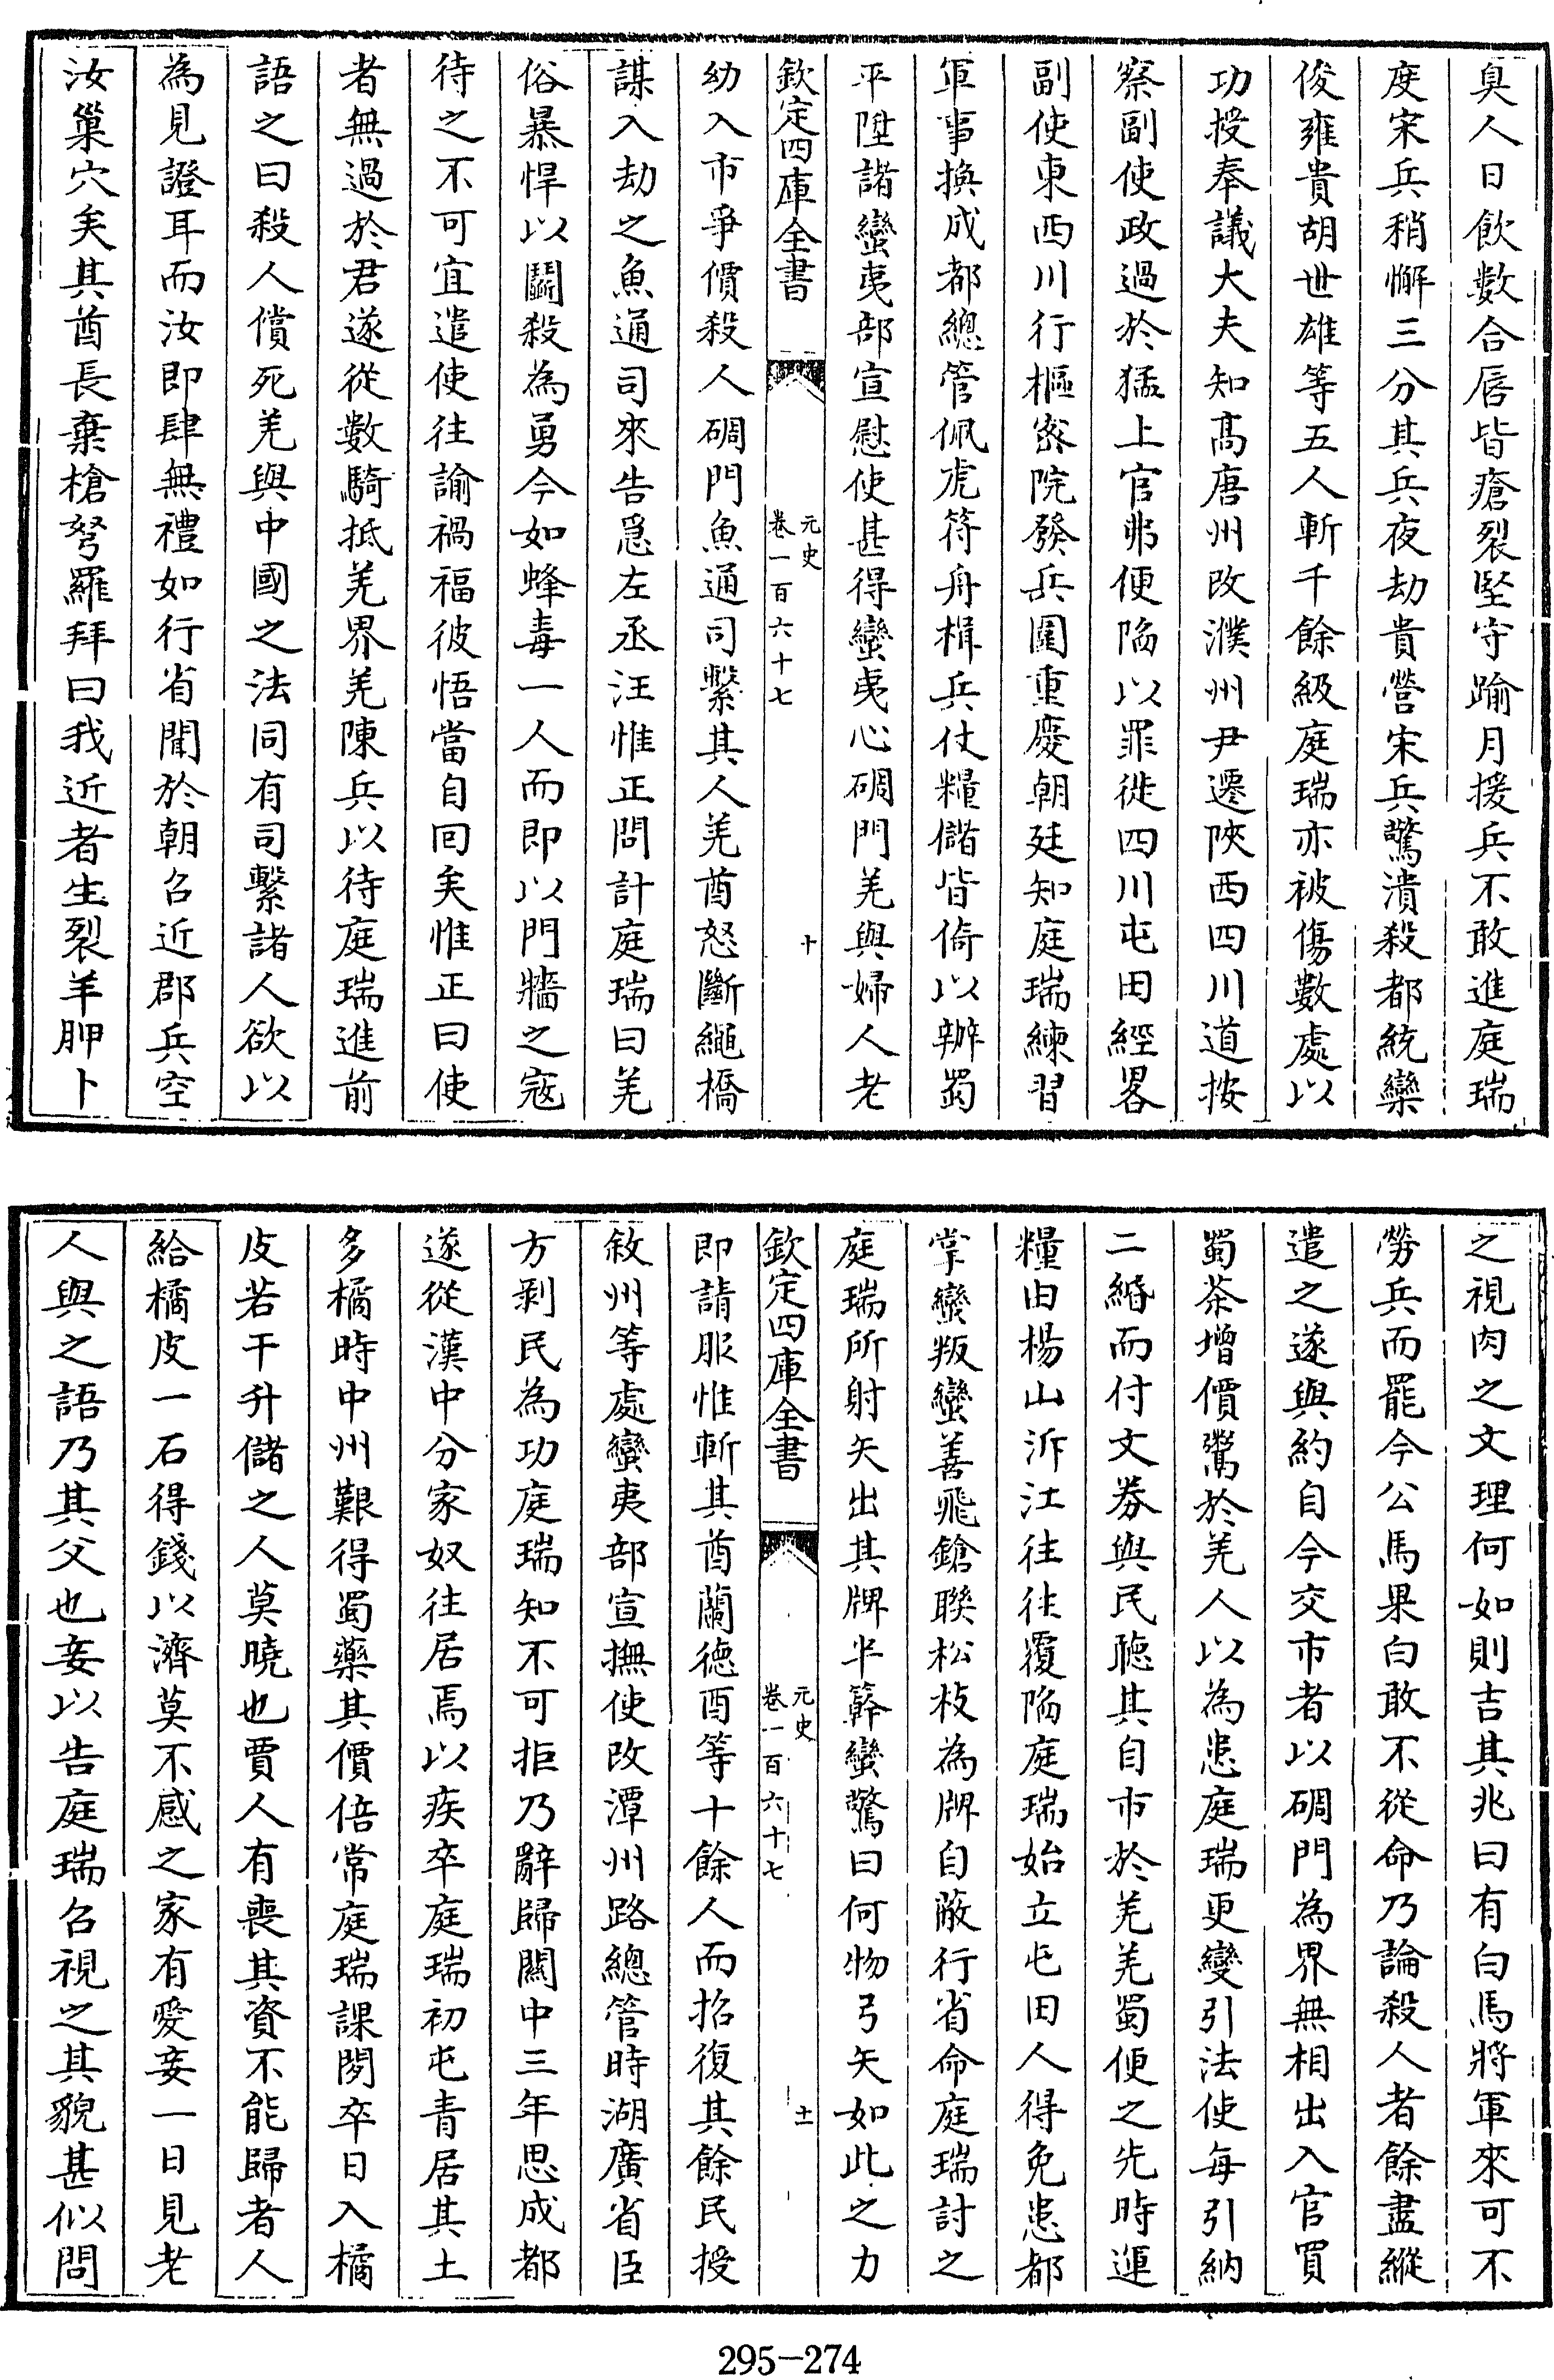 臭人日飲數合唇皆瘡裂堅守踰月援兵不敢進庭瑞
度宋兵稍懈三分其兵夜劫貴營宋兵驚潰殺都統欒
俊雍貴胡世雄等五人斬千餘級庭瑞亦被傷數處以
功授奉議大夫知髙唐州改濮州尹遷陜西四川道按
察副使政過於猛上官弗便陷以罪徙四川屯田經畧
副使東西川行樞密院發兵圍重慶朝廷知庭瑞練習
軍事換成都總管佩虎符舟楫兵仗糧儲皆倚以辦蜀
平陞諸蠻夷部宣慰使甚得蠻夷心碉門羌與婦人老
欽定四庫全書
元史
卷一百六十七
十
幼入市爭價殺人碉門魚通司繫其人羌酋怒斷繩橋
謀入劫之魚通司來告急左丞汪惟正問計庭瑞曰羌
俗暴悍以鬭殺為勇今如蜂毒一人而即以門牆之寇
待之不可宜遣使往諭禍福彼悟當自回矣惟正曰使
者無過於君遂從數騎抵羌界羌陳兵以待庭瑞進前
語之曰殺人償死羌與中國之法同有司繫諸人欲以
為見證耳而汝即肆無禮如行省聞於朝召近郡兵空
汝巢穴矣其酋長棄槍弩羅拜曰我近者生裂羊胛卜
之視肉之文理何如則吉其兆曰有白馬將軍來可不
勞兵而罷今公馬果白敢不從命乃論殺人者餘盡縱
遣之遂與約自今交市者以碉門為界無相出入官買
蜀茶增價鬻於羌人以為患庭瑞更變引法使每引納
二緡而付文券與民聽其自市於羌羌蜀便之先時運
糧由楊山泝江往往覆陷庭瑞始立屯田人得免患都
掌蠻叛蠻善飛鎗聯松枝為牌自蔽行省命庭瑞討之
庭瑞所射矢出其牌半簳蠻驚曰何物弓矢如此之力
欽定四庫全書
元史
卷一百六十七
十一
即請服惟斬其酋蘭德酉等十餘人而招復其餘民授
敘州等處蠻夷部宣撫使改潭州路總管時湖廣省臣
方剥民為功庭瑞知不可拒乃辭歸關中三年思成都
遂從漢中分家奴往居焉以疾卒庭瑞初屯青居其土
多橘時中州艱得蜀藥其價倍常庭瑞課閱卒日入橘
皮若干升儲之人莫曉也賈人有喪其資不能歸者人
給橘皮一石得錢以濟莫不感之家有愛妾一日見老
人與之語乃其父也妾以告庭瑞召視之其貌甚似問
295-274